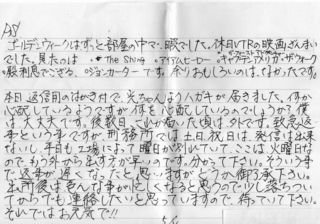 P.S
ゴールデンウィークはずっと部屋の中で、暇でした。休日VTRの映画ざんまい
でした。見たのは ・The Shining ・アダムスファミリー ・キャプテンアメリカ・ザ・ウォーク
最利息でござる。・ジョンカーター です。余りおもしろいのは、なかったです。
本日返信用のはがき付で、光ちゃんよりハガキが届きました。何か
心配しているようですが何を心配しているのでしょうか?僕
は大丈夫です。後数日、これが届いた頃は外です。致急返
事という事ですが刑務所では土日、祝日は、発信は出来
ないし、平日も工場によって曜日が別れていて、ここは火曜日な
ので、もう外から出す方が早いのです。分かって下さい。そういう事
で返事が遅くなったと思いますがどうか御了承下さい。
出所後は色んな事が忙しくなると思うので少し落ちつい
てからでも連絡したいと思いますので、待っていて下さい。
それではお元気で!!